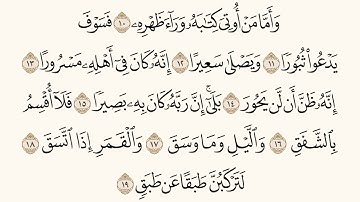 وَأَمَّا مَنْ أُوتِىَ كِتَٰبَهُۥ وَرَآءَ ظَهْرِهِۦ ۝١٠ فَسَوْفَ
يَدْعُوا۟ ثُبُورًا ۝١١ وَيَصْلَىٰ سَعِيرًا ۝١٢ إِنَّهُۥ كَانَ فِىٓ أَهْلِهِۦ مَسْرُورًا ۝١٣
إِنَّهُۥ ظَنَّ أَن لَّن يَحُورَ ۝١٤ بَلَىٰٓ إِنَّ رَبَّهُۥ كَانَ بِهِۦ بَصِيرًا ۝١٥ فَلَآ أُقْسِمُ
بِٱلشَّفَقِ ۝١٦ وَٱلَّيْلِ وَمَا وَسَقَ ۝١٧ وَٱلْقَمَرِ إِذَا ٱتَّسَقَ ۝١٨
لَتَرْكَبُنَّ طَبَقًا عَن طَبَقٍ ۝١٩